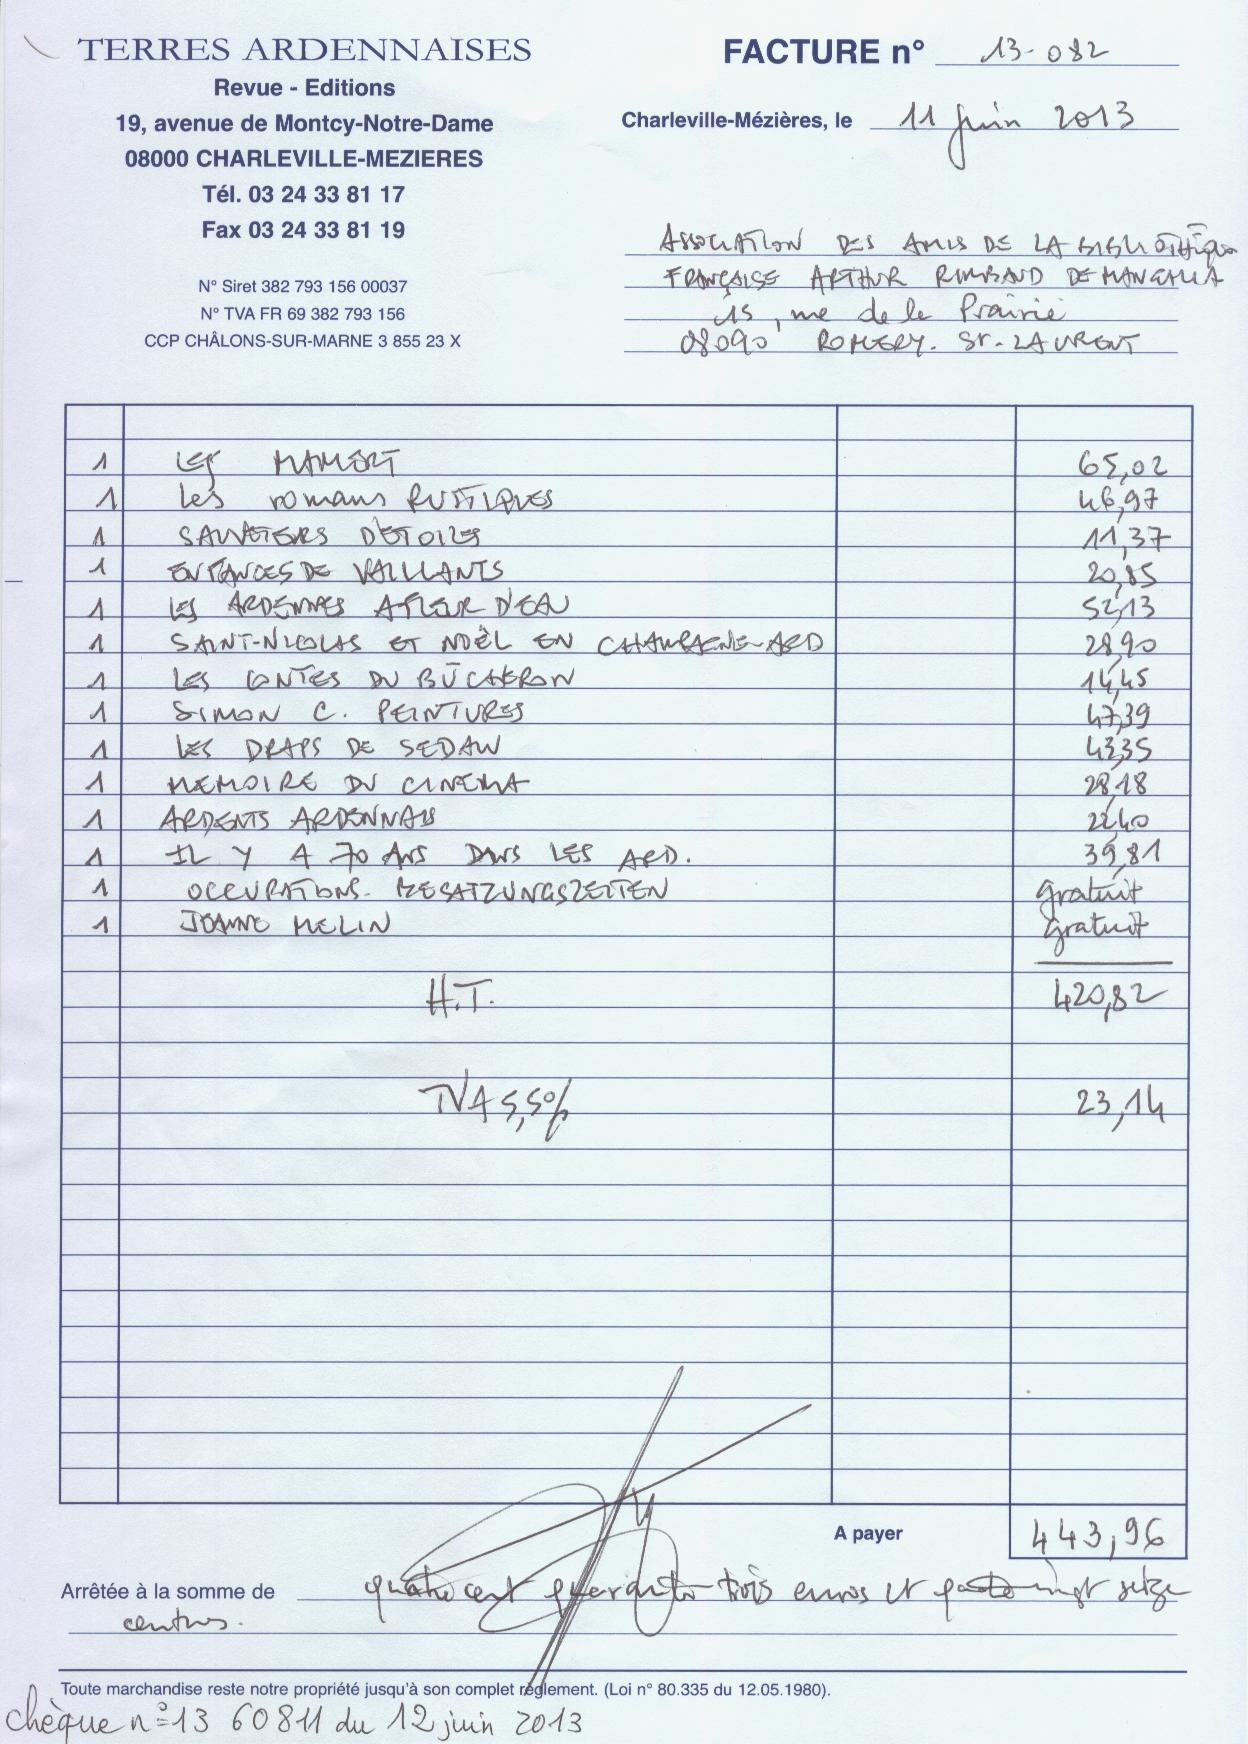 TERRES ARDENNAISES
Revue - Editions
19, avenue de Montcy-Notre-Dame
08000 CHARLEVILLE-MEZIERES
Tél. 03 24 33 81 17
Fax 03 24 33 81 19
N° Siret 382 793 156 00037
N° TVA FR 69 382 793 156
CCP CHÂLONS-SUR-MARNE 3 855 23 X
FACTURE n° 13-082
Charleville-Mézières, le 11 juin 2013
ASSOCIATION DES AMIS DE LA BIBLIOTHÈQUE
FRANÇAISE ARTHUR RIMBAUD DE
15, rue de la Prairie
08090 ROMERY. ST-LAURENT
1 LES 65,02
1 Les romans RUSTIQUES 46,97
1 SAUVETEURS D'ÉTOILES 11,37
1 ENFANCES DE VAILLANTS 20,85
1 LES ARDENNES A FLEUR D'EAU 52,13
1 SAINT-NICOLAS ET NOËL EN CHAMPAGNE-ARD 28,90
1 LES CONTES DU BÛCHERON 14,45
1 SIMON C. PEINTURES 47,39
1 LES DRAPS DE SEDAN 43,35
1 MEMOIRE DU CINEMA 28,18
1 ARDENTS ARDENNAIS 22,40
1 IL Y A 70 ANS DANS LES ARD. 39,81
1 OCCUPATIONS. BESATZUNGSZEITEN gratuit
1 MELIN gratuit
H.T. 420,82
TVA 5,5% 23,14
A payer 443,96
Arrêtée à la somme de quatre cent quarante trois euros et quatre vingt seize
centimes.
Toute marchandise reste notre propriété jusqu'à son complet règlement. (Loi n° 80.335 du 12.05.1980).
chèque n° 13 60811 du 12 juin 2013